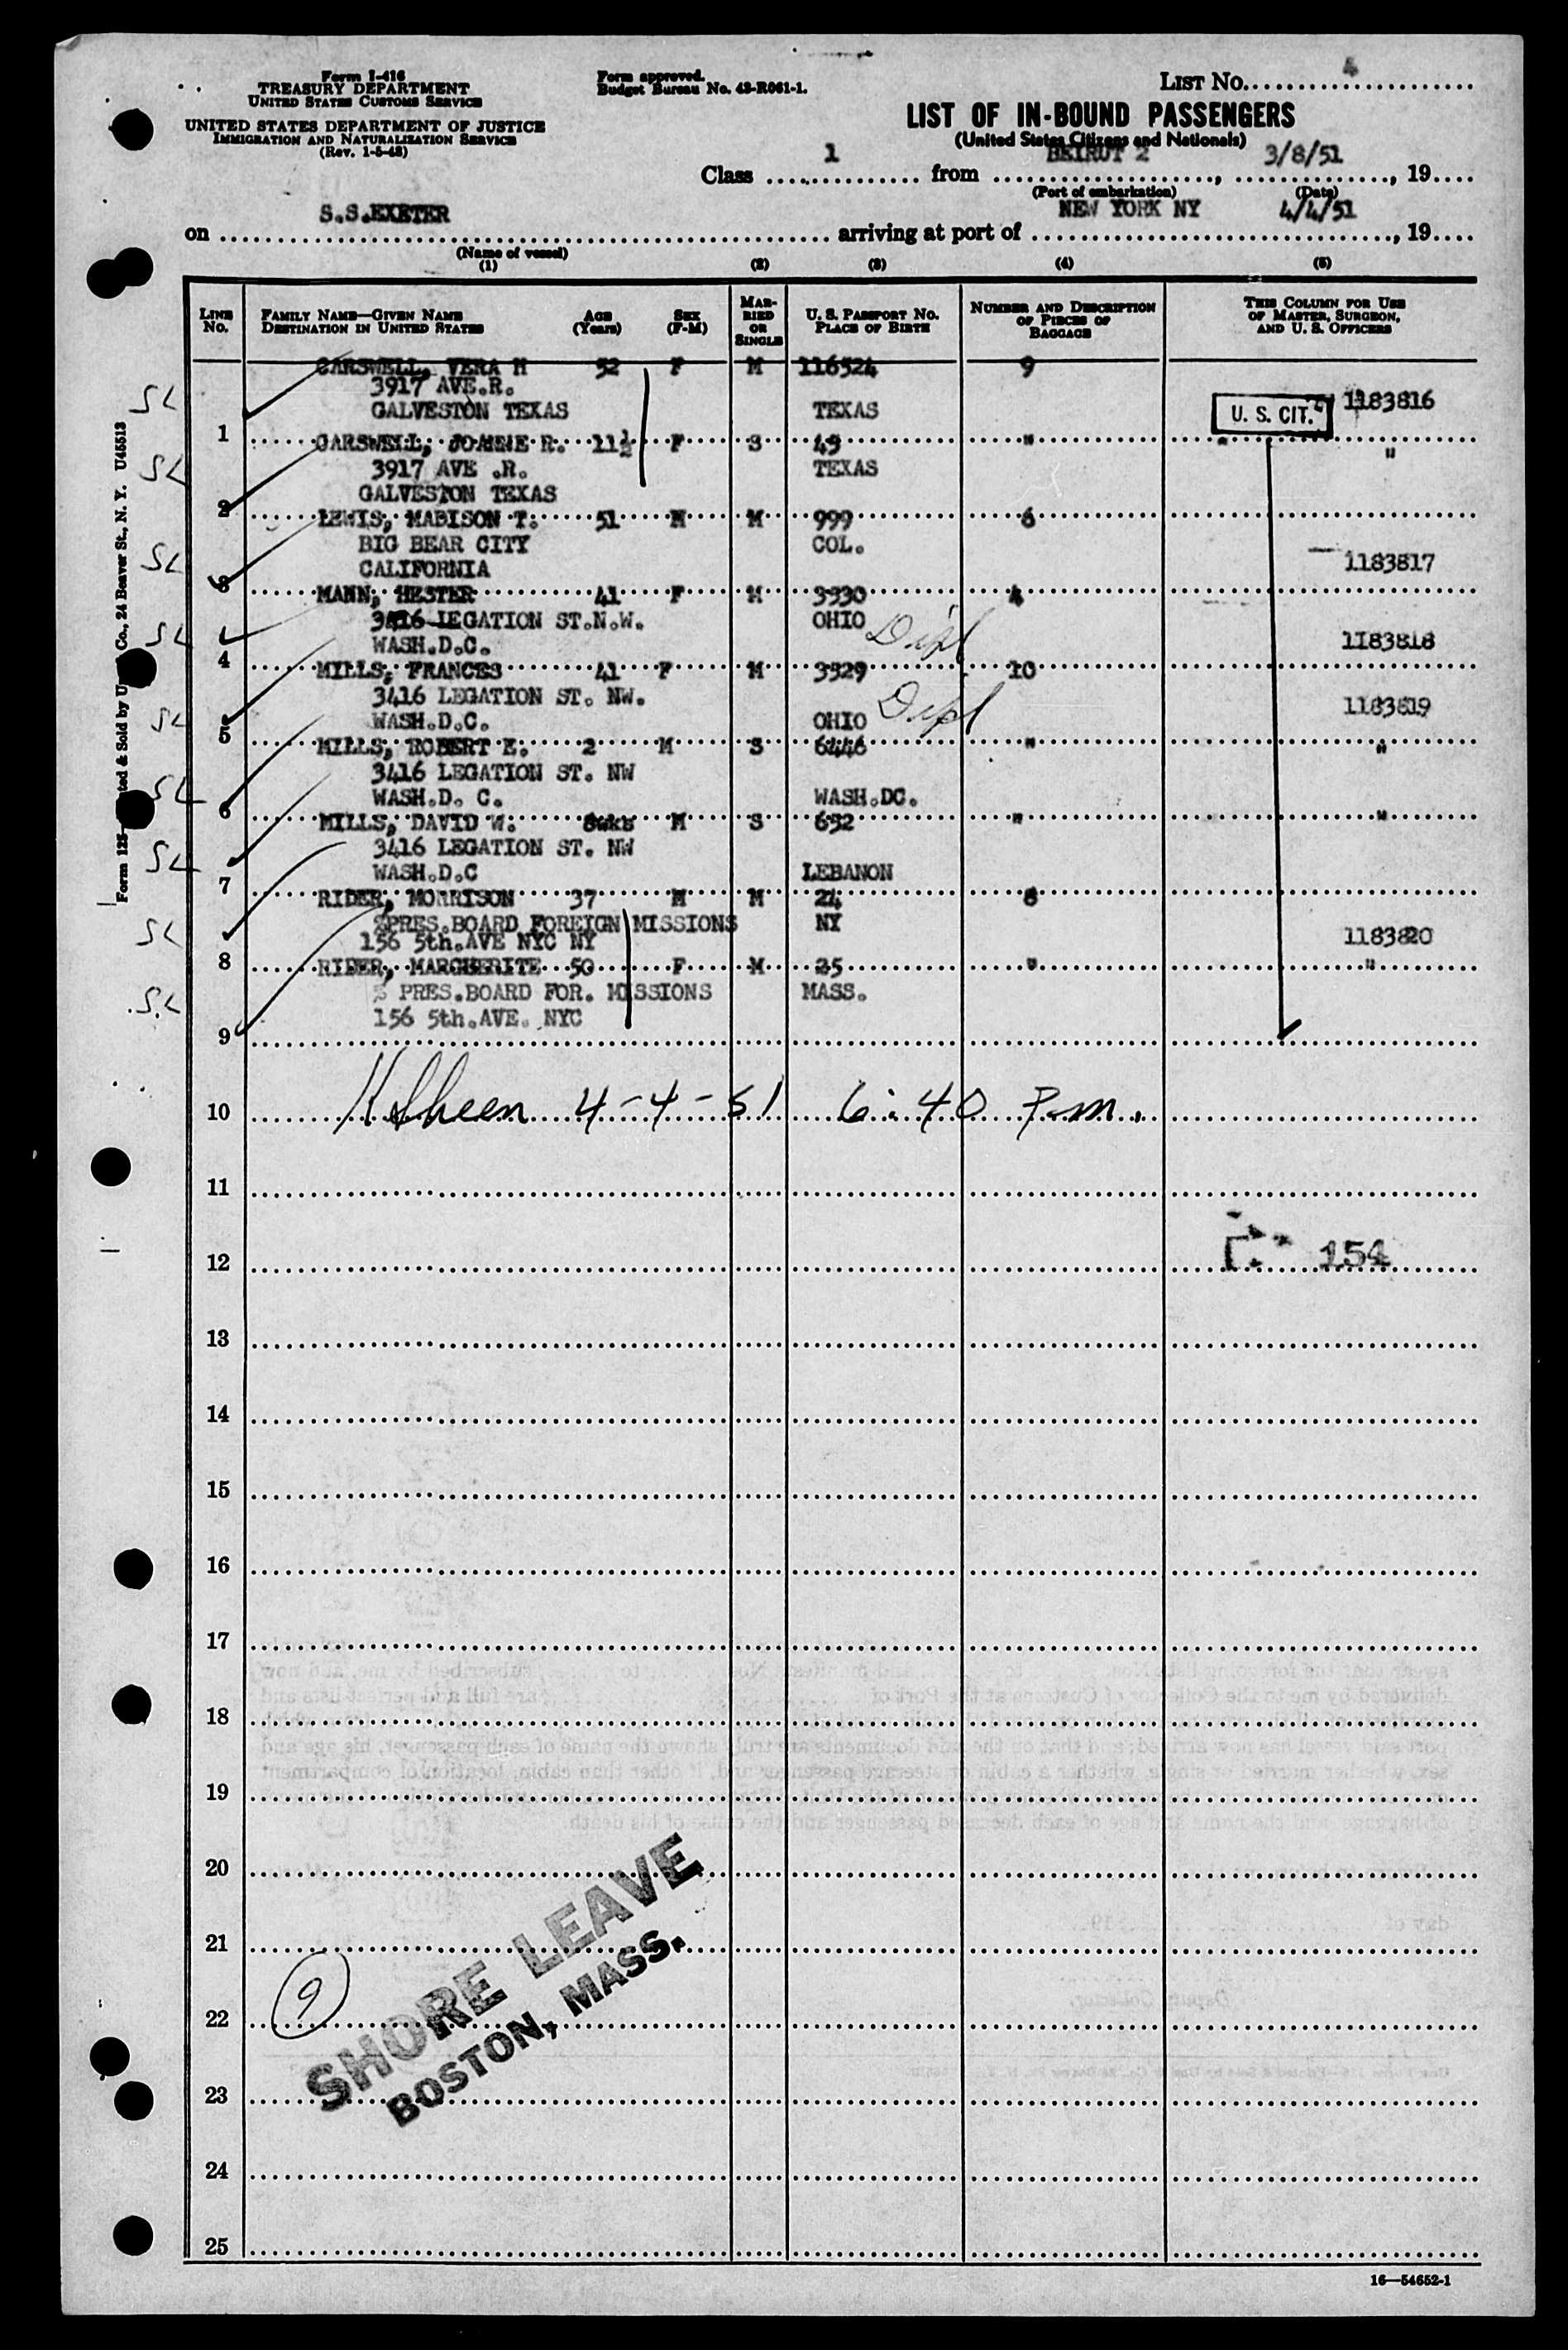 Form I-416
TREASURY DEPARTMENT
UNITED STATES CUSTOMS SERVICE
UNITED STATES DEPARTMENT OF JUSTICE
IMMIGRATION AND NATURALIZATION SERVICE
(Rev. 1-5-48)
Form approved.
Budget Bureau No. 43-R061-1.
LIST NO. 4
LIST OF IN-BOUND PASSENGERS
(United States Citizens and Nationals)
Class 1 from BEIRUT 2, 3/8/51, 19
(Port of embarkation) (Date)
on S.S.EXETER arriving at port of NEW YORK NY 4/4/51, 19
(Name of vessel)
(1) (2) (3) (4) (5)
LINE NO. FAMILY NAME—GIVEN NAME DESTINATION IN UNITED STATES AGE (Years) SEX (F-M) MARRIED OR SINGLE U. S. PASSPORT NO. PLACE OF BIRTH NUMBER AND DESCRIPTION OF PIECES OF BAGGAGE THIS COLUMN FOR USE OF MASTER, SURGEON, AND U. S. OFFICERS
CARSWELL, VERA H 52 F M 116524 9
SL 3917 AVE.R.
GALVESTON TEXAS TEXAS U. S. CIT. 1183816
1 CARSWELL, JOANNE R. 11½ F S 49 " "
SL 3917 AVE .R. TEXAS
GALVESTON TEXAS
2 LEWIS, MADISON T. 51 M M 999 6
SL BIG BEAR CITY COL.
CALIFORNIA 1183817
3 MANN, HESTER 41 F M 3930 4
SL 3416 LEGATION ST.N.W. OHIO Dipl
WASH.D.C. 1183818
4 MILLS, FRANCES 41 F M 3929 10
3416 LEGATION ST. NW. Dipl 1183819
SL WASH.D.C. OHIO
5 MILLS, ROBERT E. 2 M S 6446 " "
3416 LEGATION ST. NW
SL WASH.D. C. WASH.DC.
6 MILLS, DAVID W. 8wks M S 652 " "
3416 LEGATION ST. NW
SL WASH.D.C LEBANON
7 RIDER, MORRISON 37 M M 24 8
%PRES.BOARD FOREIGN MISSIONS NY
SL 156 5th.AVE NYC NY 1183820
8 RIDER, MARGUERITE 50 F M 25 " "
% PRES.BOARD FOR. MISSIONS MASS.
SL 156 5th.AVE. NYC
9
10 4-4-51 6:40 P.m.
11
12 154
13
14
15
16
17
18
19
20
21
22
23
24
25
9
SHORE LEAVE
BOSTON, MASS.
16—54652-1
Co., 24 Beaver St., N. Y. U45513